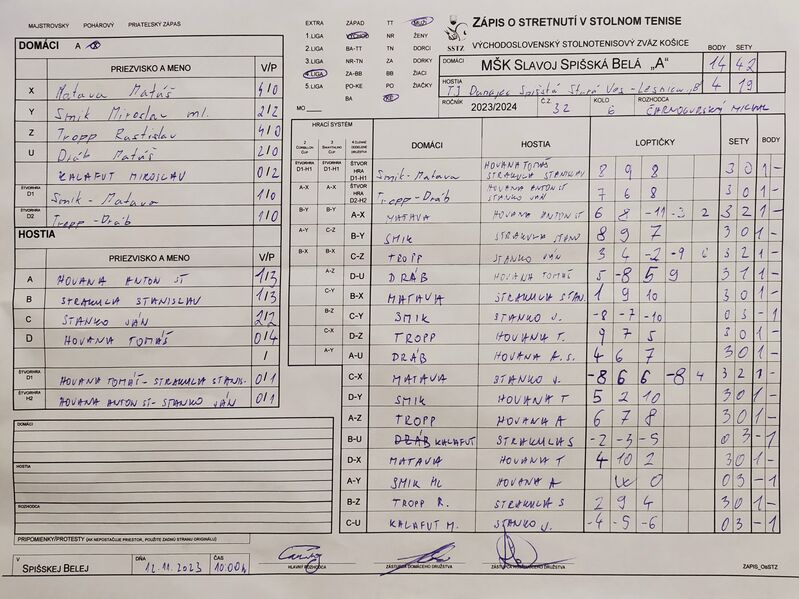 MAJSTROVSKÝ POHÁROVÝ PRIATEĽSKÝ ZÁPAS
DOMÁCI A
PRIEZVISKO A MENO V/P
X Matava Matúš 4/0
Y Smik Miroslav ml. 2/2
Z Tropp Rastislav 4/0
U Dráb Matúš 2/0
KALAFUT MIROSLAV 0/2
ŠTVORHRA D1 Smik - Matava 1/0
ŠTVORHRA D2 Tropp - Dráb 1/0
HOSTIA
PRIEZVISKO A MENO V/P
A HOVANA ANTON ST 1/3
B STRAKULA STANISLAV 1/3
C STANKO JÁN 2/2
D HOVANA TOMÁŠ 0/4
/
ŠTVORHRA D1 HOVANA TOMÁŠ - STRAKULA STANIS. 0/1
ŠTVORHRA H2 HOVANA ANTON ST - STANKO JÁN 0/1
DOMÁCI
HOSTIA
ROZHODCA
PRIPOMIENKY/PROTESTY (AK NEPOSTAČUJE PRIESTOR, POUŽITE ZADNÚ STRANU ORIGINÁLU)
V SPIŠSKEJ BELEJ
DŇA 12.11.2023
ČAS 10:00h
EXTRA ZÁPAD TT MUŽI
1.LIGA VÝCHOD NR ŽENY
2.LIGA BA-TT TN DORCI
3.LIGA NR-TN ZA DORKY
4.LIGA ZA-BB BB ŽIACI
5.LIGA PO-KE PO ŽIAČKY
BA KE
MO
SSTZ
ZÁPIS O STRETNUTÍ V STOLNOM TENISE
VÝCHODOSLOVENSKÝ STOLNOTENISOVÝ ZVÄZ KOŠICE
BODY SETY
DOMÁCI MŠK SLAVOJ SPIŠSKÁ BELÁ „A" 14 42
HOSTIA TJ Dunajec Spišská Stará Ves - Lesnica „B" 4 19
ROČNÍK 2023/2024 Č.Z. 32 KOLO 6 ROZHODCA ČARNOGURSKÝ MICHAL
HRACÍ SYSTÉM
DOMÁCI HOSTIA LOPTIČKY SETY BODY
ŠTVORHRA D1-H1 ŠTVORHRA D1-H1 ŠTVOR HRA D1-H1 Smik-Matava HOVANA TOMÁŠ STRAKULA STANISLAV 8 9 8 3 0 1 -
A-X A-X ŠTVOR HRA D2-H2 Tropp-Dráb HOVANA ANTON ST STANKO JÁN 7 6 8 3 0 1 -
B-Y B-Y A-X MATAVA HOVANA ANTON ST 6 8 -11 -3 2 3 2 1 -
A-Y C-Z B-Y SMIK STRAKULA STANO 8 9 7 3 0 1 -
B-X B-X C-Z TROPP STANKO JÁN 3 4 -2 -9 3 2 1 -
A-Z D-U DRÁB HOVANA TOMÁŠ 5 -8 5 9 3 1 1 -
C-Y B-X MATAVA STRAKULA STAN. 1 9 10 3 0 1 -
B-Z C-Y SMIK STANKO J. -8 -7 -10 0 3 - 1
C-X D-Z TROPP HOVANA T. 9 7 5 3 0 1 -
A-Y A-U DRÁB HOVANA A.S. 4 6 7 3 0 1 -
C-X MATAVA STANKO J. -8 6 6 -8 4 3 2 1 -
D-Y SMIK HOVANA T 5 2 10 3 0 1 -
A-Z TROPP HOVANA A 6 7 8 3 0 1 -
B-U DRÁB KALAFUT STRAKULA S -2 -3 -5 0 3 - 1
D-X MATAVA HOVANA T 4 10 2 3 0 1 -
A-Y SMIK ML HOVANA A W O 0 3 - 1
B-Z TROPP R. STRAKULA S 2 9 4 3 0 1 -
C-U KALAFUT M. STANKO J. -4 -5 -6 0 3 - 1
HLAVNÝ ROZHODCA ZÁSTUPCA DOMÁCEHO DRUŽSTVA ZÁSTUPCA HOSŤUJÚCEHO DRUŽSTVA
ZÁPIS_OSSTZ